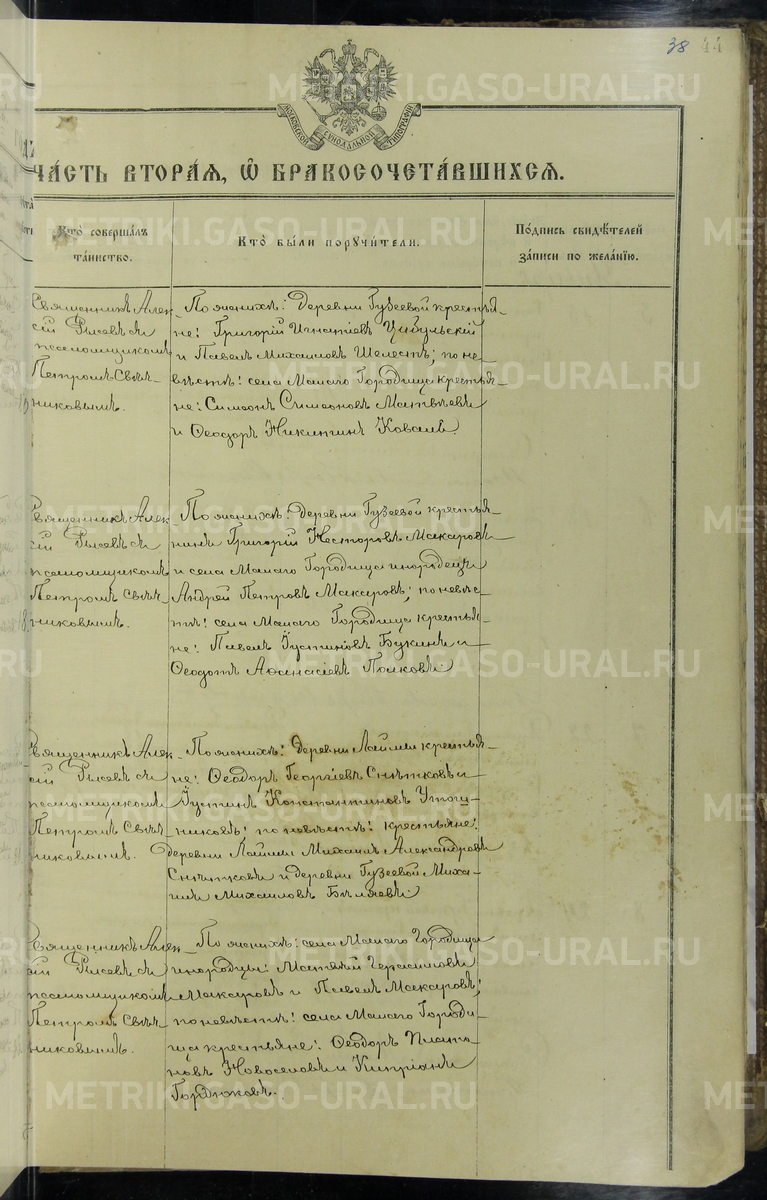 38 44
МОСКОВСКОЙ СѴНОДАЛЬНОЙ ТИПОГРАФІИ
ЧА́СТЬ ВТОРА́Я, Ѡ҆ БРАКОСОЧЕТА́ВШИХСЯ.
Кто̀ соверша́лъ
та́инство.
Кто̀ бы́ли поручи́тели.
По́дпись свидѣ́телей
за́писи по жела́нїю.
Священникъ Алек-
сій Рысевъ съ
псаломщикомъ
Петромъ Свѣч-
никовымъ.
По женихѣ: деревни Гузеевой крестья-
не: Григорій Игнатіевъ Цибульскій
и Павелъ Михаиловъ Шелестъ; по не-
вѣстѣ: села Малаго Городища крестья-
не: Симеонъ Симеоновъ Матвѣевъ
и Ѳеодоръ Никитинъ Коваль.
Священникъ Алек-
сій Рысевъ съ
псаломщикомъ
Петромъ Свѣч-
никовымъ.
По женихѣ: деревни Гузеевой крестья-
нинъ Григорій Несторовъ Макаровъ
и села Малаго Городища инородецъ
Андрей Петровъ Макаровъ; по невѣс-
тѣ: села Малаго Городища крестья-
не: Павелъ Іустиновъ Букинъ и
Ѳеодотъ Аѳанасіевъ Полковъ.
Священникъ Алек-
сій Рысевъ съ
псаломщикомъ
Петромъ Свѣч-
никовымъ.
По женихѣ: деревни Лаймы крестья-
не: Ѳеодоръ Георгіевъ Снѣтковъ и
Іустинъ Константиновъ
по невѣстѣ: крестьяне:
деревни Лаймы Михаилъ Александровъ
Снѣтковъ и деревни Гузеевой Миха-
илъ Михаиловъ Бѣляевъ.
Священникъ Алек-
сій Рысевъ съ
псаломщикомъ
Петромъ Свѣч-
никовымъ.
По женихѣ: села Малаго Городища
инородцы: Матвѣй Герасимовъ
Макаровъ и Павелъ Макаровъ;
по невѣстѣ: села Малаго Городи-
ща крестьяне: Ѳеодоръ Плато-
новъ Новоселовъ и Кипріанъ
Гордюковъ.
METRIKI.GASO-URAL.RU